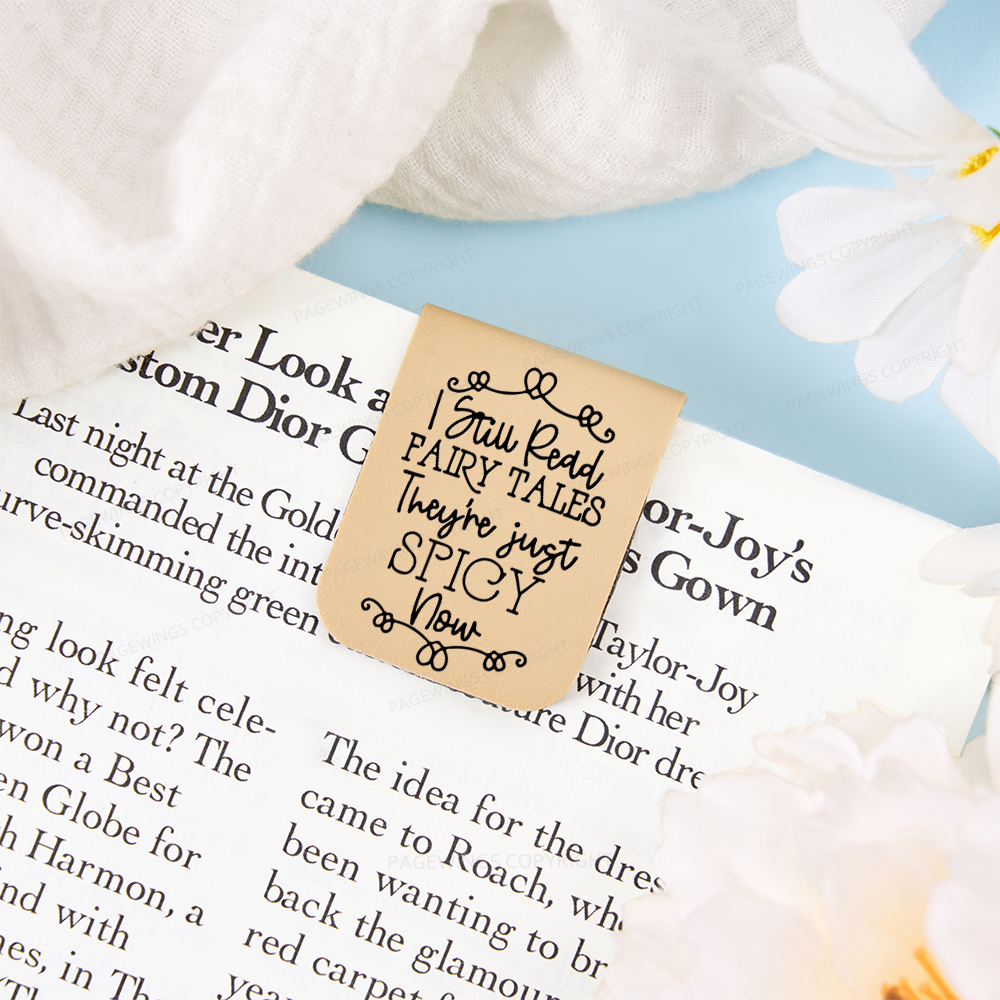 er Look a
stom Dior G
Last night at the Gold
commanded the int
urve-skimming green
ng look felt cele-
d why not? The
won a Best
en Globe for
h Harmon, a
nd with
nes, in The
I Still Read
FAIRY TALES
They're just
SPICY
Now
or-Joy's
s Gown
Taylor-Joy
with her
ture Dior dre
The idea for the dres
came to Roach, who
been wanting to br
back the glamour
red carpet
PAGEWINGS COPYRIGHT
PAGEWINGS COPYRIGHT
PAGEWINGS COPYRIGHT
PAGEWINGS COPYRIGHT
PAGEWINGS COPYRIGHT
PAGEWINGS COPYRIGHT